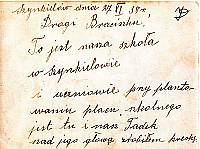 Szynkielów dnia 27 VI 39 r.
Drogi Bracišku.
To jest nasza szkoła
w Szynkielowie
i uczniowie przy planto
waniu placu szkolnego
jest tu i nasz Tadek
nad jego głową zrobiłem kreskę.